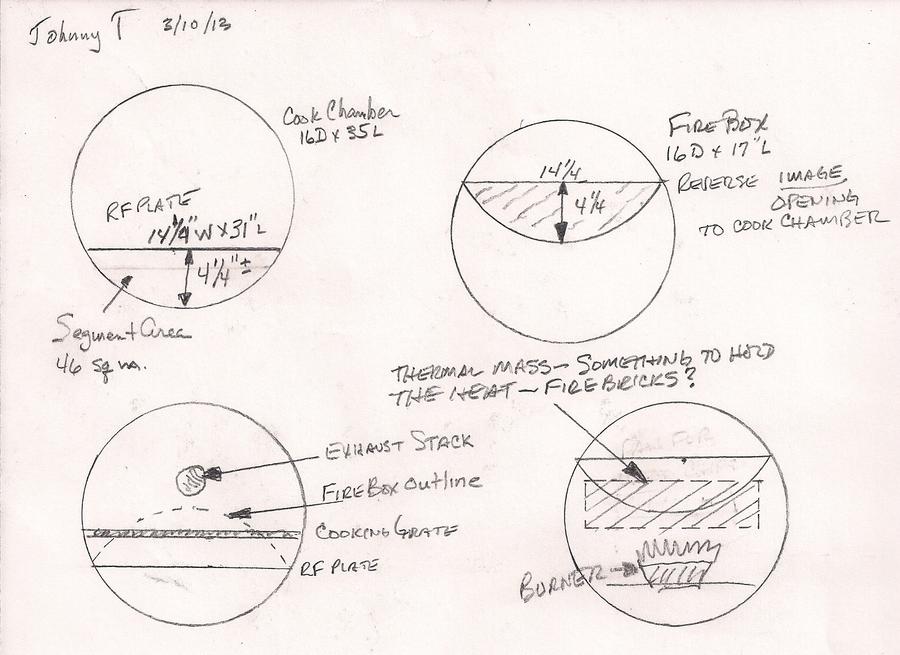 Johnny T 3/10/13
Cook Chamber
16D x 35L
RF PLATE
14 1/4" W x 31" L
4 1/4" ±
Segment Area
46 sq in.
FIRE BOX
16D x 17" L
14 1/4
4 1/4
REVERSE IMAGE
OPENING
TO COOK CHAMBER
THERMAL MASS — SOMETHING TO HOLD
THE HEAT — FIRE BRICKS?
EXHAUST STACK
FIRE BOX OUTLINE
COOKING GRATE
RF PLATE
BURNER